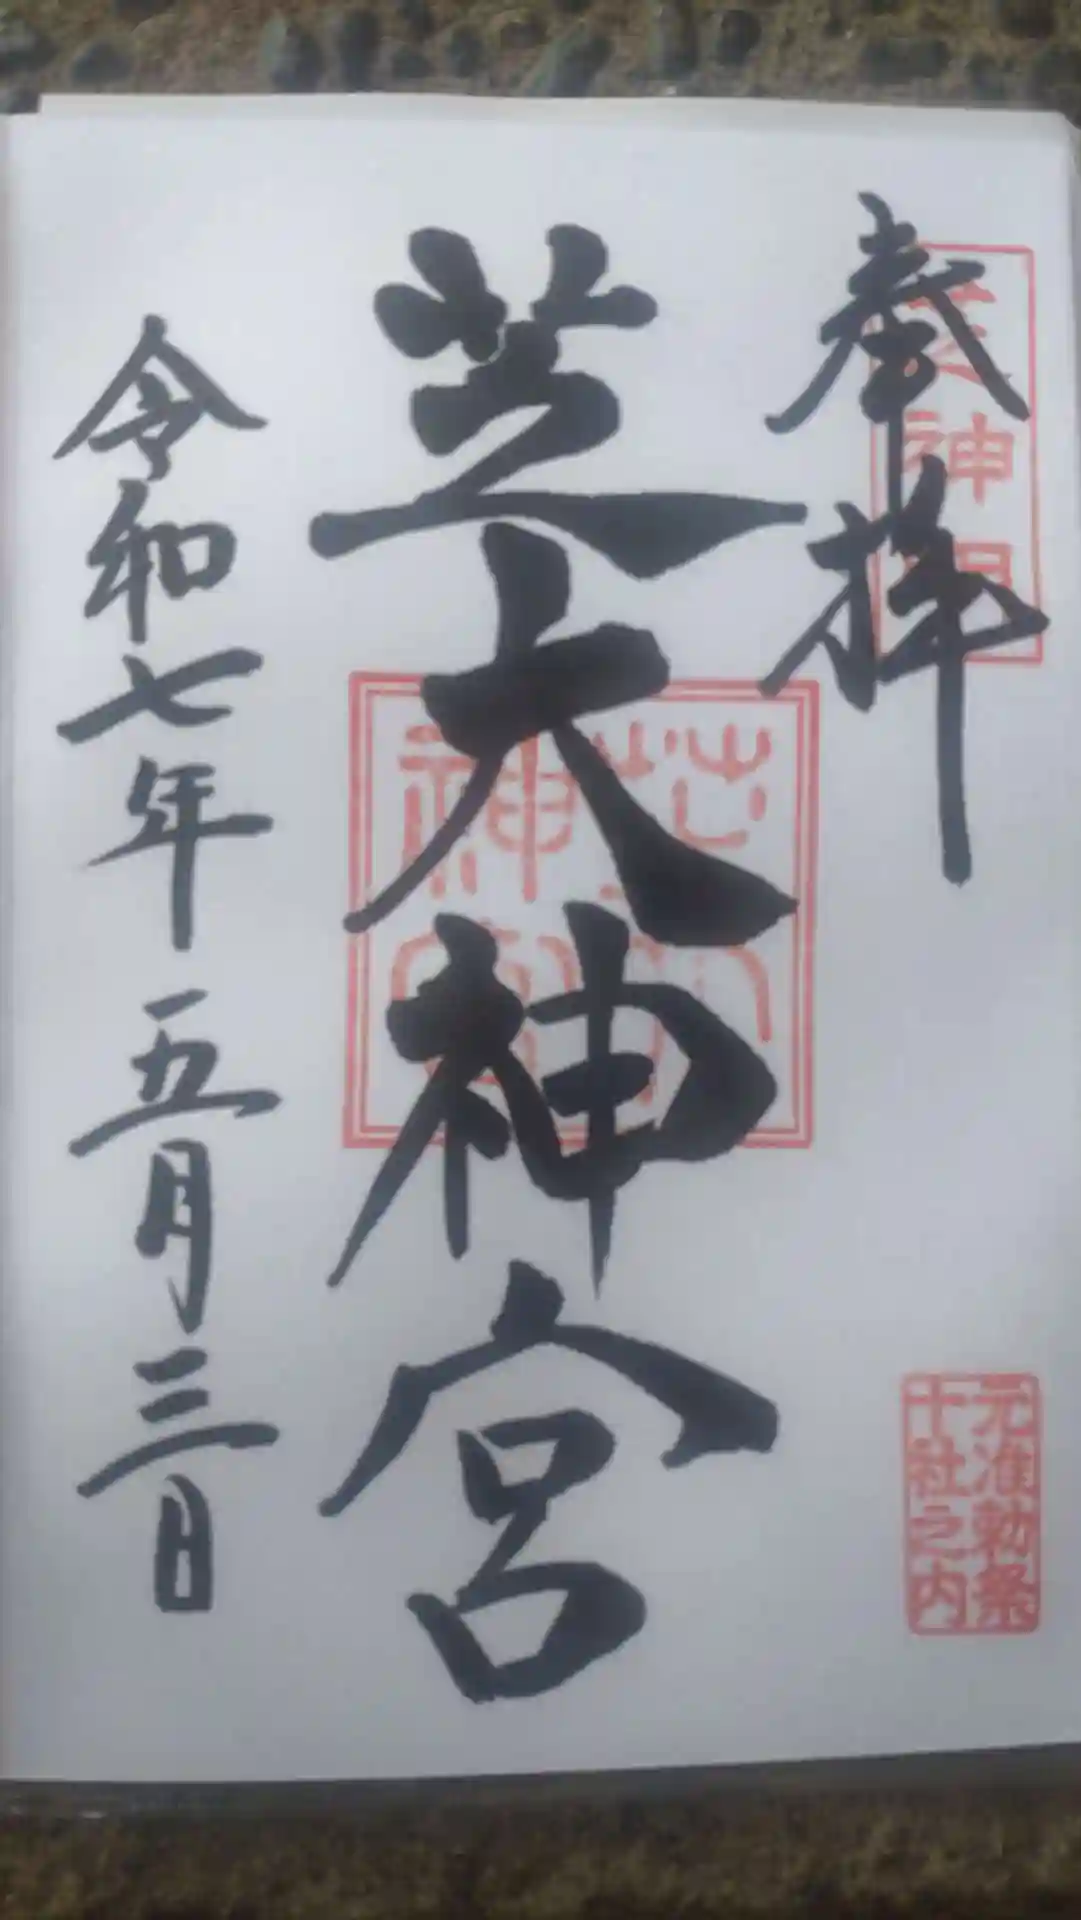 奉拝
芝神明
元准勅祭
十社之内
芝大神宮
芝大
神宮
令和七年五月三日